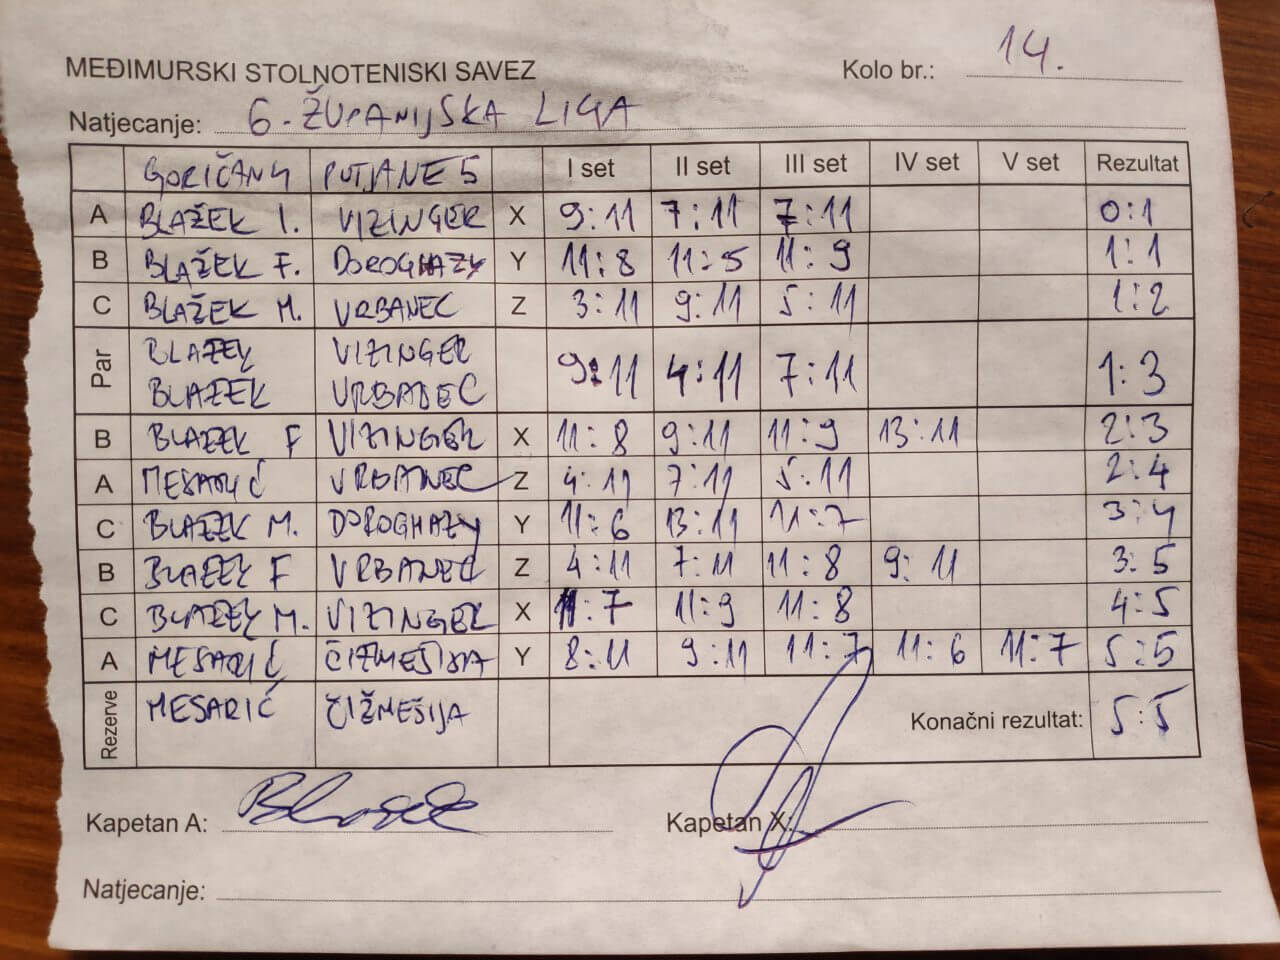 MEĐIMURSKI STOLNOTENISKI SAVEZ
Kolo br.: 14.
Natjecanje: 6. ŽUPANIJSKA LIGA
GORIČAN 4 PUTJANE 5 I set II set III set IV set V set Rezultat
A BLAŽEK I. VIZINGER X 9:11 7:11 7:11 0:1
B BLAŽEK F. DOROGHAZY Y 11:8 11:5 11:9 1:1
C BLAŽEK M. VRBANEC Z 3:11 9:11 5:11 1:2
Par BLAZEK VIZINGER
BLAZEK VRBANEC 9:11 4:11 7:11 1:3
B BLAZEK F VIZINGER X 11:8 9:11 11:9 13:11 2:3
A MESARIĆ VRBANEC Z 4:11 7:11 5:11 2:4
C BLAZEK M. DOROGHAZY Y 11:6 13:11 11:7 3:4
B BLAZEK F VRBANEC Z 4:11 7:11 11:8 9:11 3:5
C BLAZEK M. VIZINGER X 11:7 11:9 11:8 4:5
A MESARIĆ ČIZMEŠIJA Y 8:11 9:11 11:7 11:6 11:7 5:5
Rezerve MESARIĆ ČIŽMEŠIJA Konačni rezultat: 5:5
Kapetan A: Blažek Kapetan X:
Natjecanje: